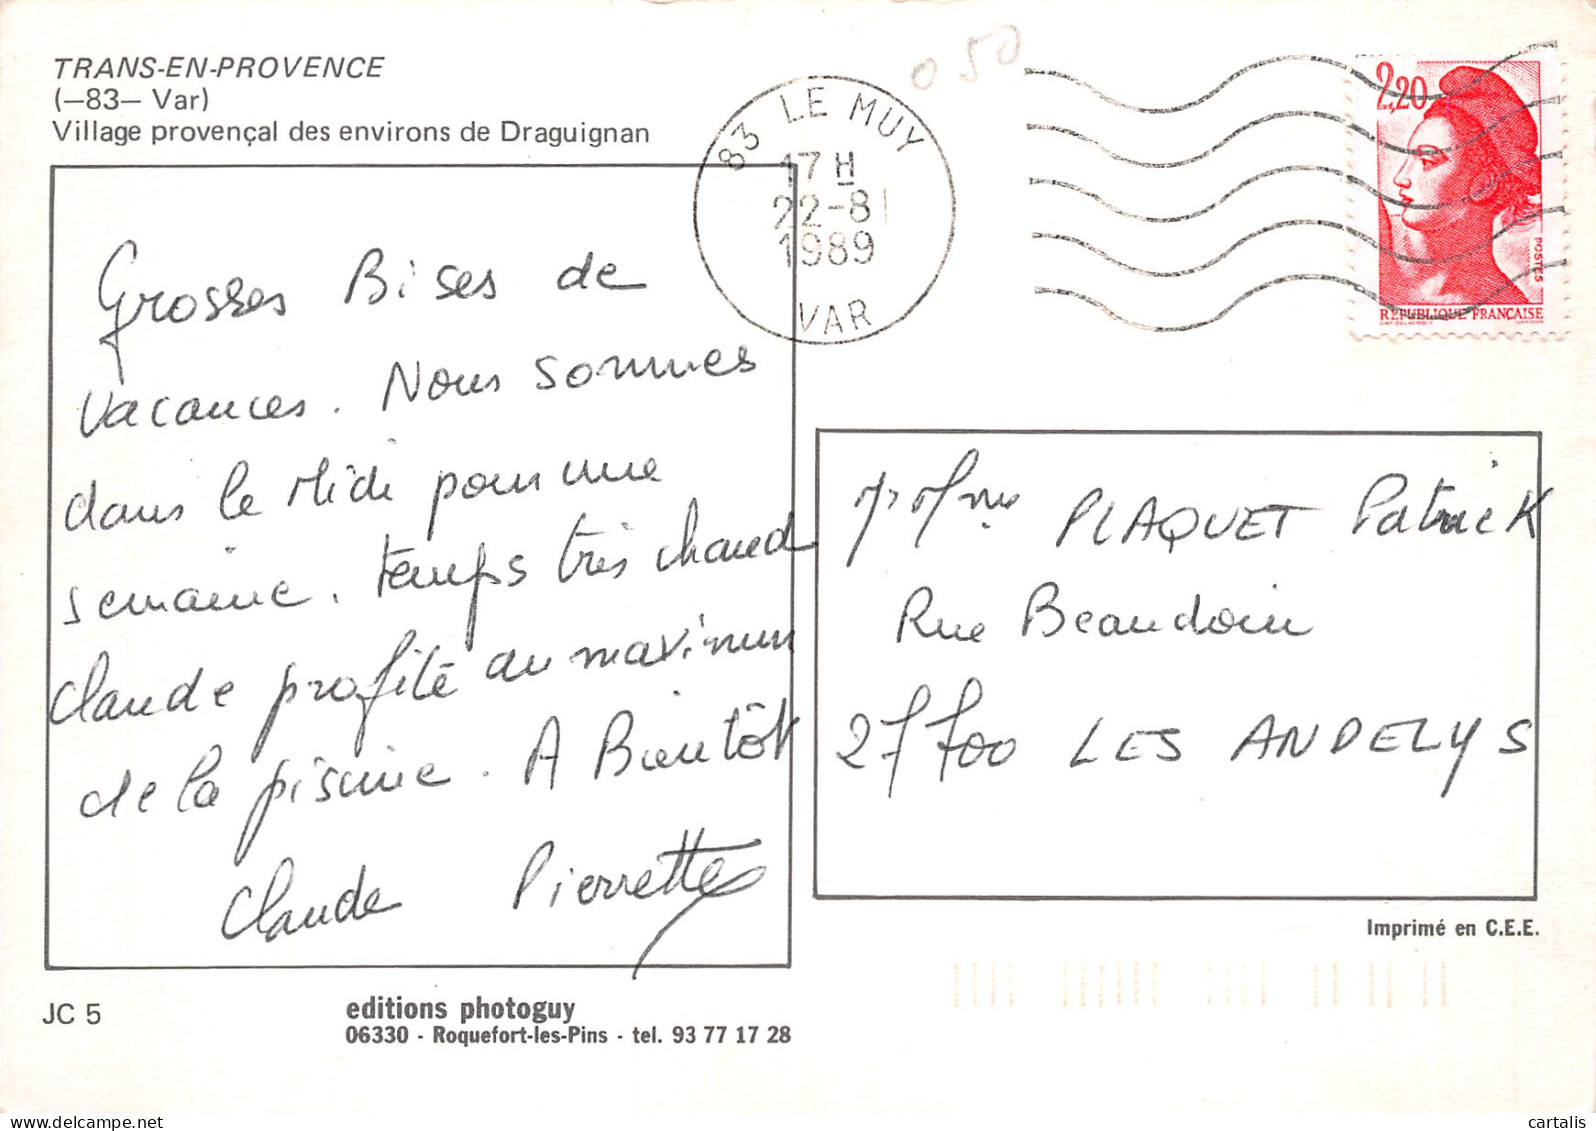 TRANS-EN-PROVENCE
(—83— Var)
Village provençal des environs de Draguignan
0 50
83 LE MUY
17 H
22-8
1989
VAR
2,20
POSTES
RÉPUBLIQUE FRANÇAISE
Grosses Bises de
vacances. Nous sommes
dans le Midi pour une
semaine. temps très chaud
Claude profite au maximum
de la piscine. A Bientôt
Claude Pierrette
Mr Mme PLAQUET Patrick
Rue Beaudoin
27700 LES ANDELYS
Imprimé en C.E.E.
JC 5
editions photoguy
06330 - Roquefort-les-Pins - tel. 93 77 17 28
cartalis
delcampe.net